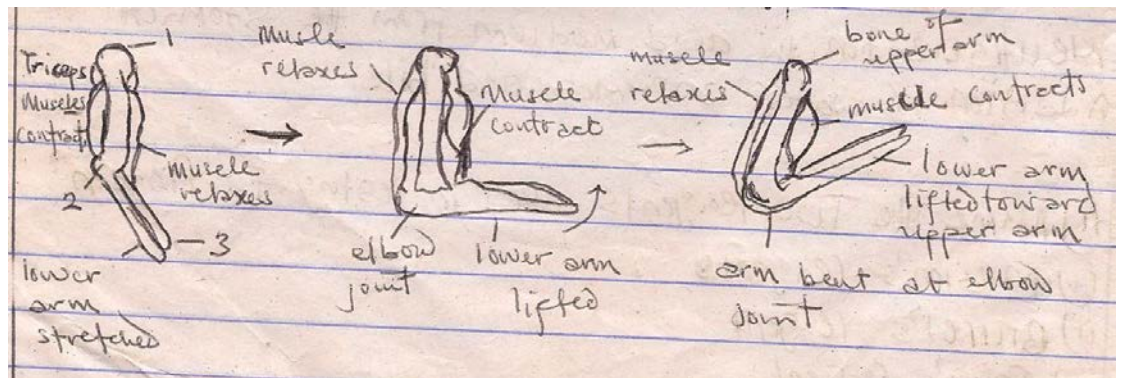 1
Triceps
Muscles
contract
2
muscle
relaxes
3
lower
arm
stretched
Muscle
relaxes
Muscle
contract
elbow
joint
lower arm
lifted
muscle
relaxes
bone of
upper arm
muscle contracts
lower arm
lifted toward
upper arm
arm bent at elbow
joint